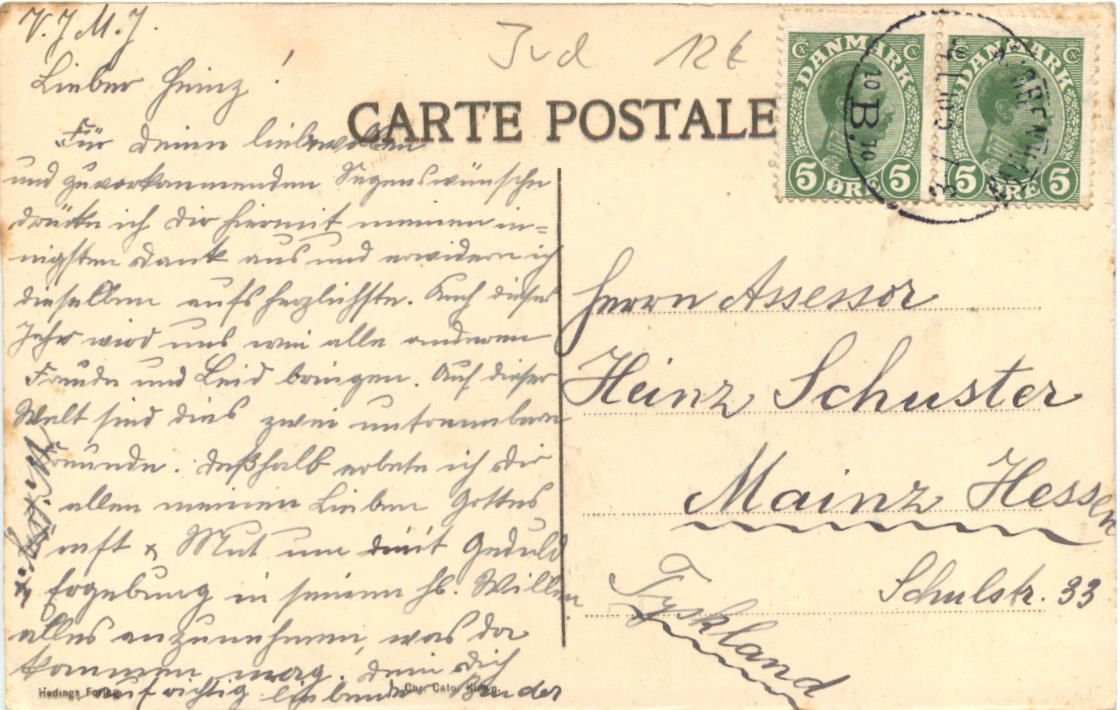 V. J. M. J.
Lieber Heinz!
Für deine liebevollen
und zuvorkommenden Segenswünsche
drücke ich dir hiermit meinen in=
nigsten Dank aus und erwidere ich
dieselben aufs herzlichste. Auch dieses
Jahr wird uns wie alle anderen
Freude und Leid bringen. Auf dieser
Welt sind dies zwei untrennbare
Freunde. Deßhalb erbete ich dir
allen meinen Lieben Gottes
Mut um mit Geduld
Ergebung in seinen hl. Willen
alles anzunehmen, was da
kommen mag. Dein dich
aufrichtig liebender Bruder
Jvd 12t
CARTE POSTALE
DANMARK
5 ØRE 5
DANMARK
5 ØRE 5
B.
Herrn Assessor
Heinz Schuster
Mainz Hessen
Schulstr. 33
Tyskland
Hedings Forlag